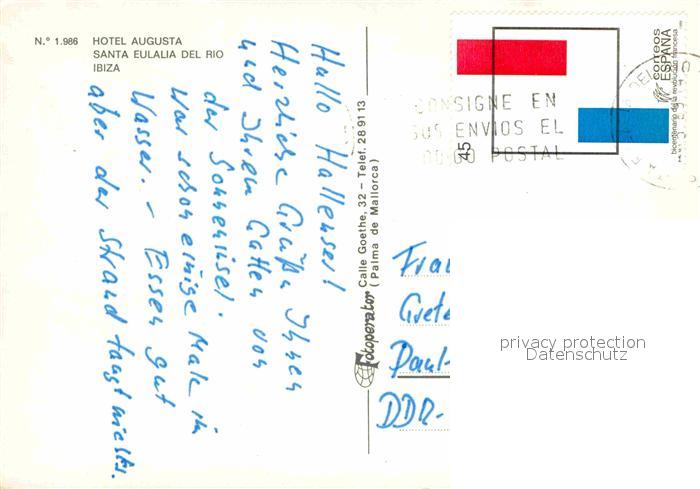 N.º 1.986 HOTEL AUGUSTA
SANTA EULALIA DEL RIO
IBIZA
Hallo Hallenser!
Herzliche Grüße Ihnen
und Ihrem Gatten von
der Sonneninsel.
War schon einige Male im
Wasser. – Essen gut
aber der Strand taugt nichts.
Fotoperator Calle Goethe, 32 – Telef. 28 91 13
(Palma de Mallorca)
45
correos
ESPAÑA
bicentenario de la revolución francesa
CONSIGNE EN
SUS ENVIOS EL
POSTAL
Frau
Grete
Paul-
DDR-
privacy protection
Datenschutz